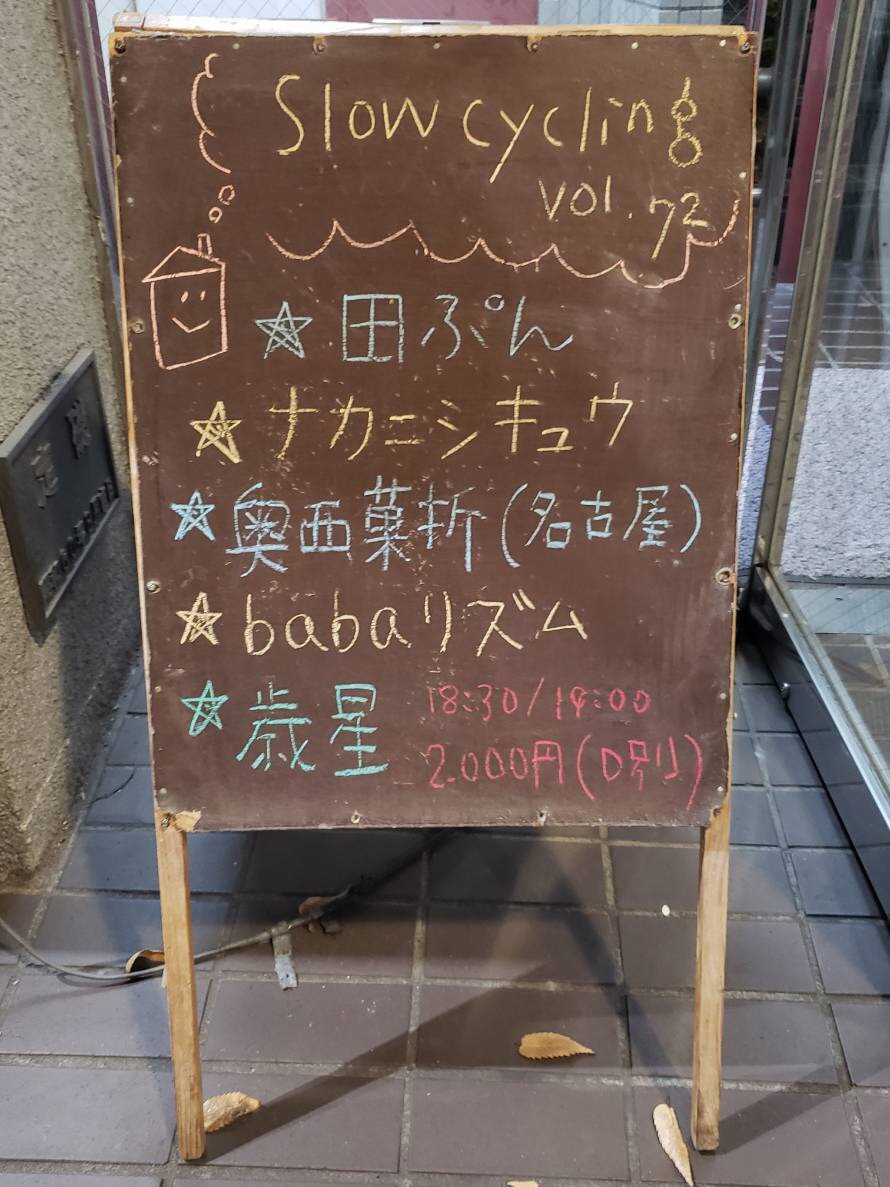 Slow cycling
vol.72
☆田ぷん
☆ナカニシキュウ
☆奥西菓折(名古屋)
☆babaリズム
☆歳星
18:30/19:00
2.000円(D別)